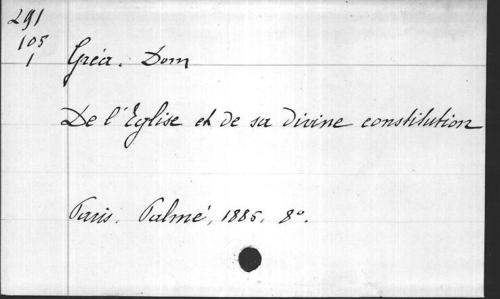 291
105
1
Gréa. Dom
De l'Eglise et de sa divine constitution
Paris, Palmé, 1885, 8°.